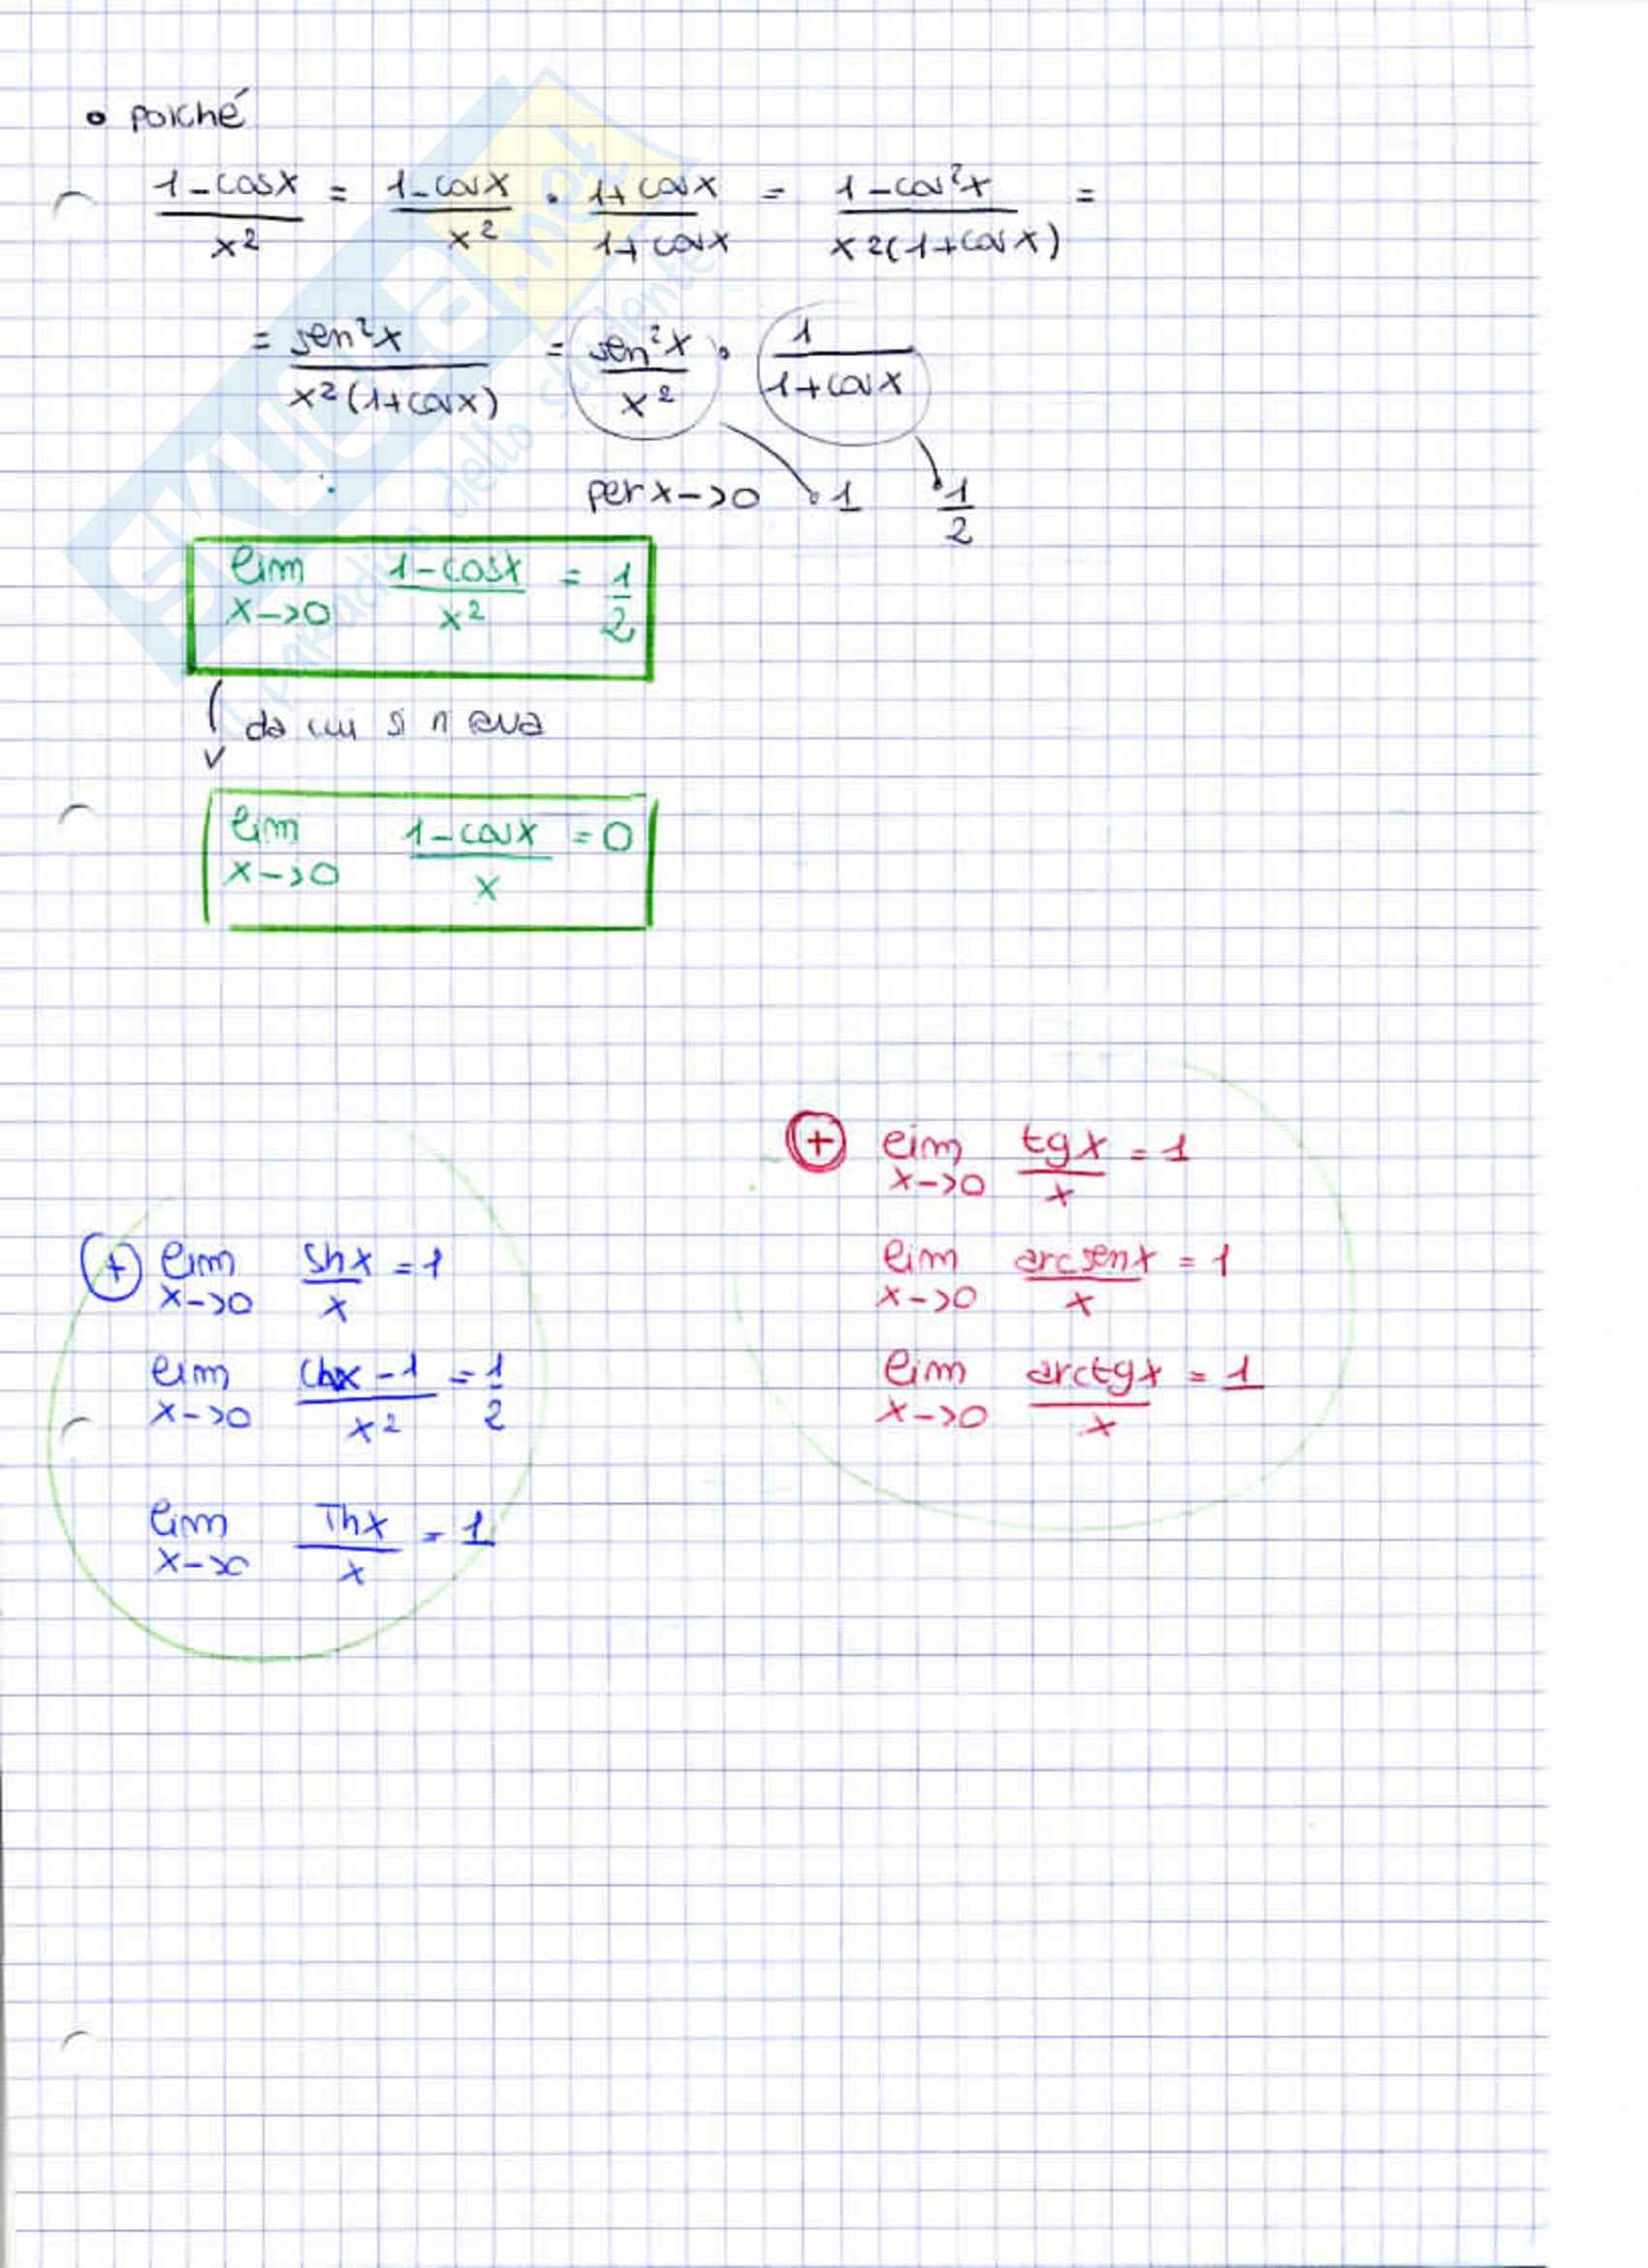 • poiché
1-cosx/x² = 1-cosx/x² · 1+cosx/1+cosx = 1-cos²x/x²(1+cosx) =
= sen²x/x²(1+cosx) = sen²x/x² · 1/1+cosx
per x->0 1 1/2
lim x->0 1-cosx/x² = 1/2
da cui si ricava
lim x->0 1-cosx/x = 0
+ lim x->0 tgx/x = 1
lim x->0 arcsenx/x = 1
lim x->0 arctgx/x = 1
+ lim x->0 Shx/x = 1
lim x->0 Chx-1/x² = 1/2
lim x->0 Thx/x = 1
SKUOLA.net
il paradiso dello studente